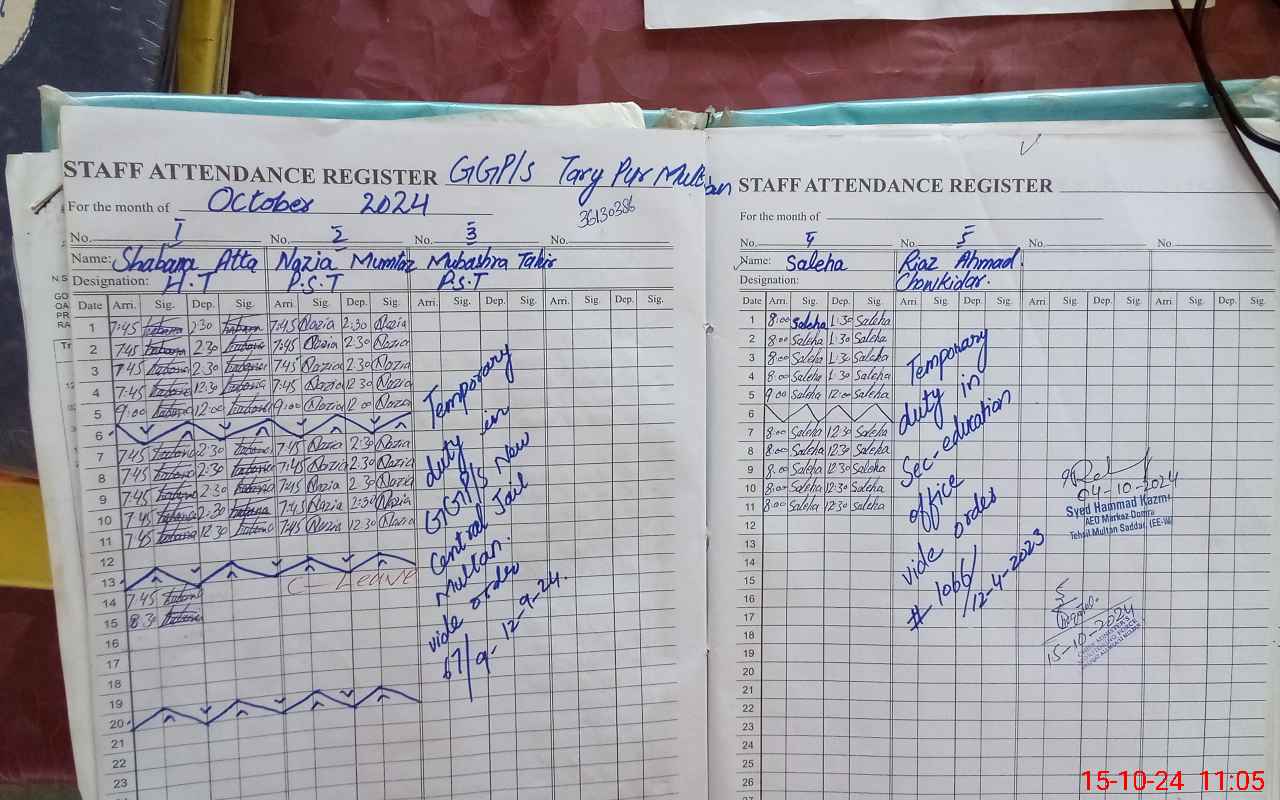 STAFF ATTENDANCE REGISTER GGP/s Tary Pur Multan
For the month of October 2024
36130386
No. 1 No. 2 No. 3 No.
Name: Shabana Atta Nazia Mumtaz Mubashra Tahir
Designation: H.T P.S.T P.S.T
Date Arri. Sig. Dep. Sig. Arri. Sig. Dep. Sig. Arri. Sig. Dep. Sig. Arri. Sig. Dep. Sig.
1 7:45 2:30 7:45 Nazia 2:30 Nazia
2 7:45 2:30 7:45 Nazia 2:30 Nazia
3 7:45 2:30 7:45 Nazia 2:30 Nazia
4 7:45 12:30 7:45 Nazia 12:30 Nazia
5 9:00 12:00 9:00 Nazia 12:00 Nazia
6
7 7:45 2:30 7:45 Nazia 2:30 Nazia
8 7:45 2:30 7:45 Nazia 2:30 Nazia
9 7:45 2:30 7:45 Nazia 2:30 Nazia
10 7:45 2:30 7:45 Nazia 2:30 Nazia
11 7:45 12:30 7:45 Nazia 12:30 Nazia
12
13 C-Leave
14 7:45
15 8:30
16
17
18
19
20
21
22
23
Temporary
duty in
GGP/s New
Central Jail
Multan.
vide order
67/9- 12-9-24.
STAFF ATTENDANCE REGISTER
For the month of
No. 4 No. 5 No. No.
Name: Saleha Riaz Ahmad.
Designation: Chowkidar.
Date Arri. Sig. Dep. Sig. Arri. Sig. Dep. Sig. Arri. Sig. Dep. Sig. Arri. Sig. Dep. Sig.
1 8:00 Saleha 1:30 Saleha
2 8:00 Saleha 1:30 Saleha
3 8:00 Saleha 1:30 Saleha
4 8:00 Saleha 1:30 Saleha
5 9:00 Saleha 12:00 Saleha
6
7 8:00 Saleha 12:30 Saleha
8 8:00 Saleha 12:30 Saleha
9 8:00 Saleha 12:30 Saleha
10 8:00 Saleha 12:30 Saleha
11 8:00 Saleha 12:30 Saleha
12
13
14
15
16
17
18
19
20
21
22
23
24
25
26
27
Temporary
duty in
Sec-education
office
vide order
# 1066/
12-4-2023
04-10-2024
Syed Hammad Kazmi
AEO Markaz Domra
Tehsil Multan Saddar (EE-W)
15-10-2024
15-10-24 11:05